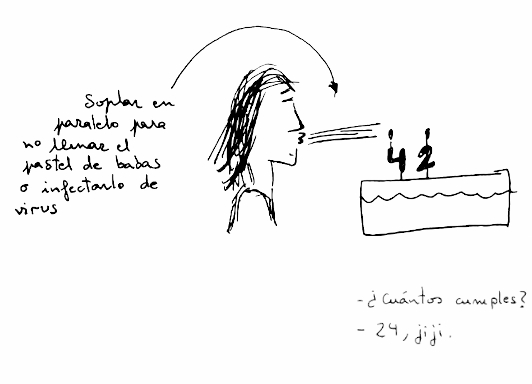 Soplar en
paralelo para
no llenar el
pastel de babas
o infectarlo de
virus
42
- ¿Cuántos cumples?
- 24, jiji.